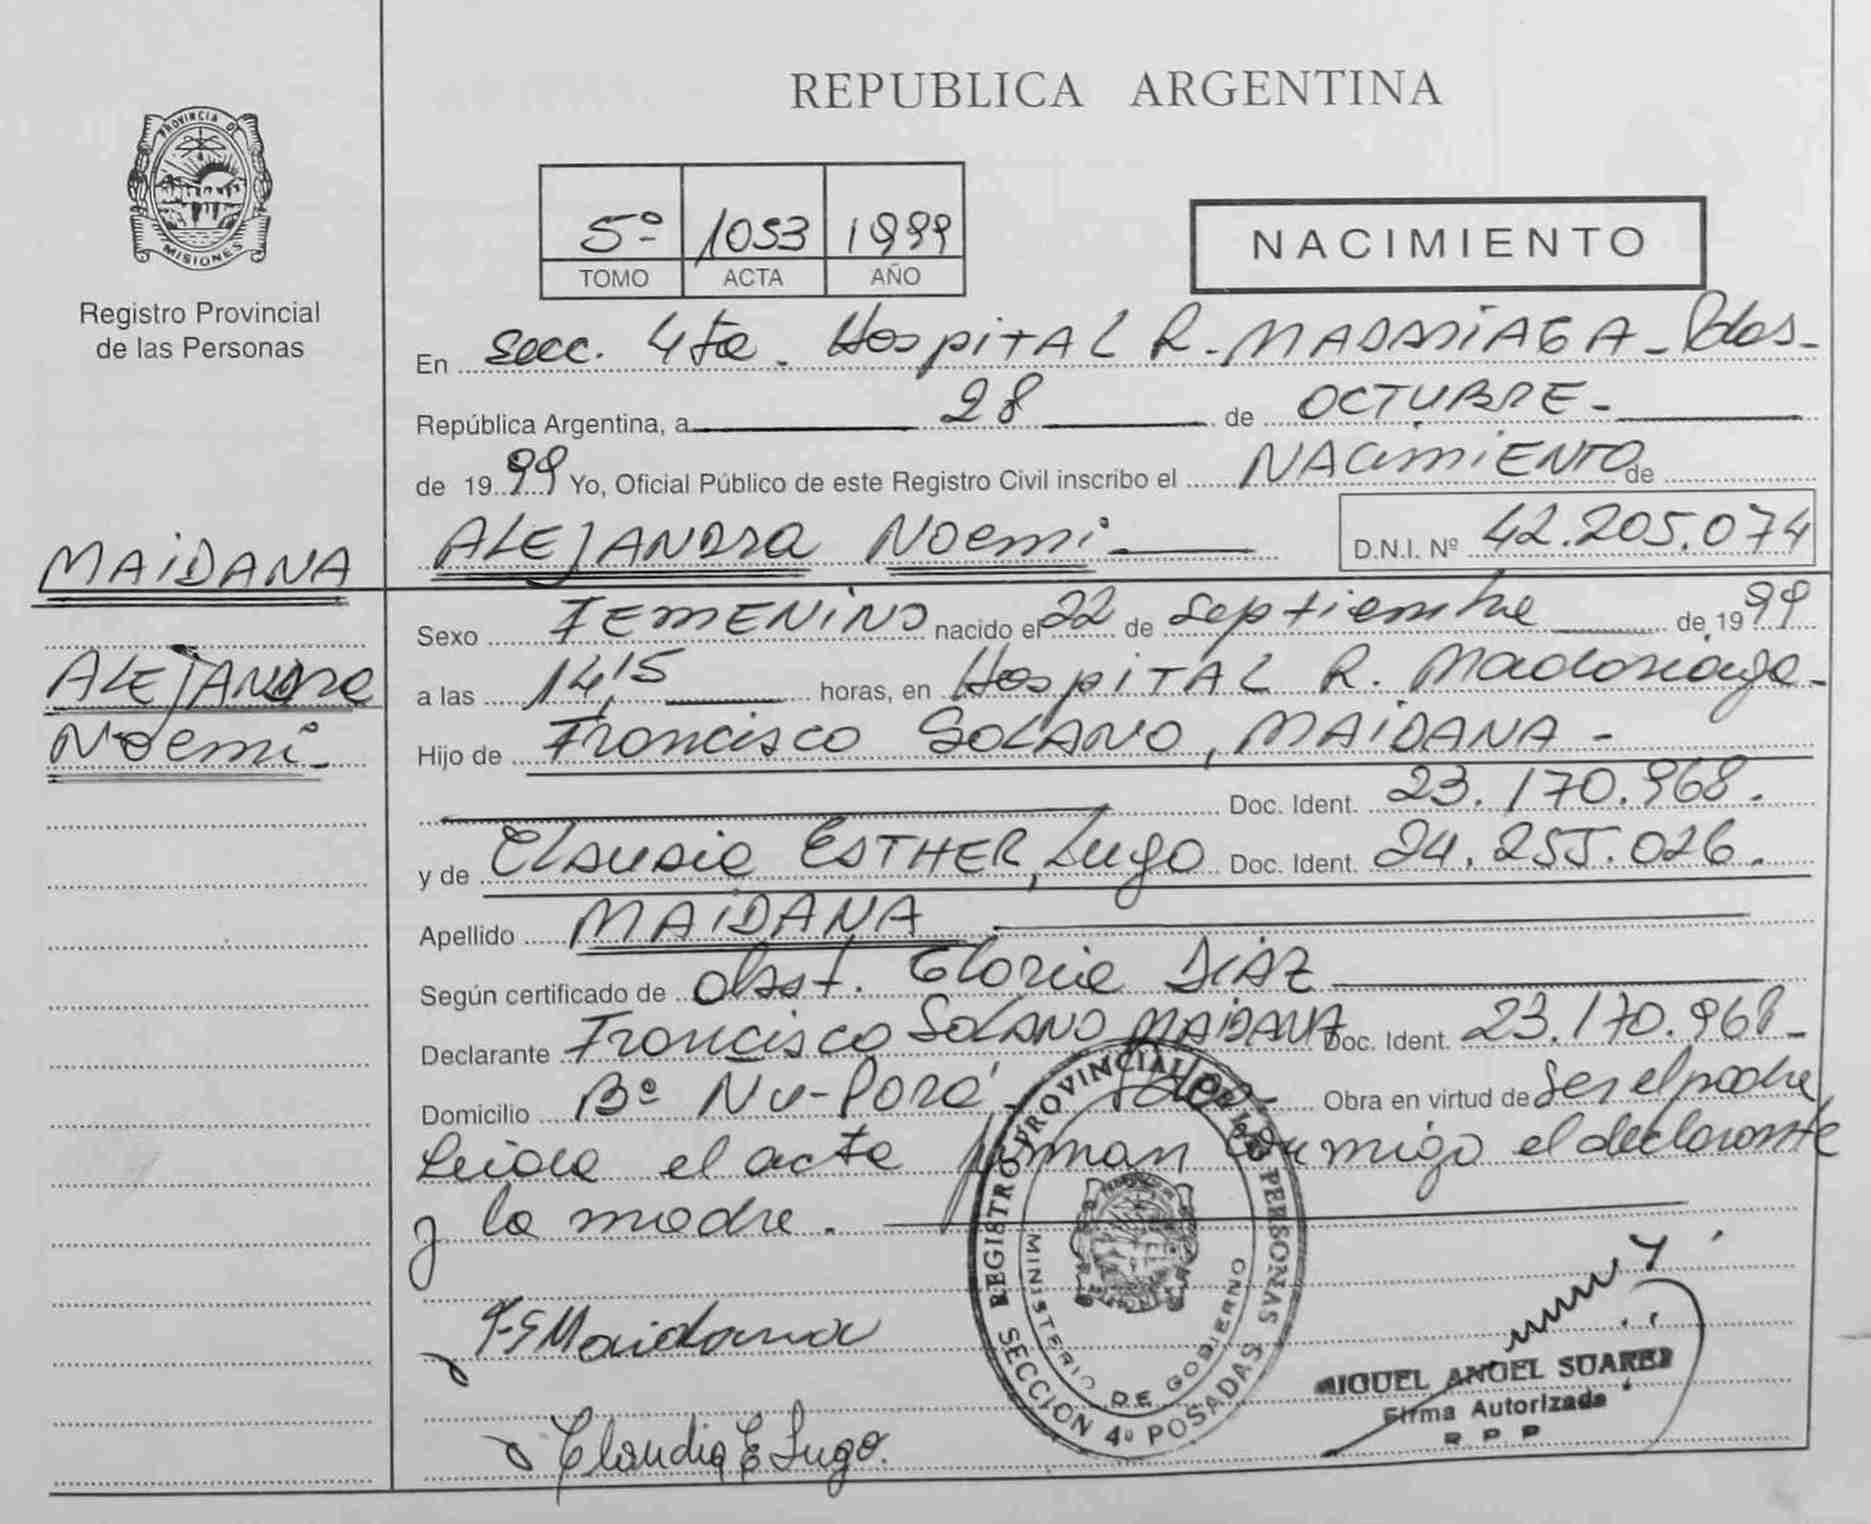 PROVINCIA DE
MISIONES
Registro Provincial
de las Personas
MAIDANA
ALEJANDRA
Noemi-
REPUBLICA ARGENTINA
5º 1053 1999
TOMO ACTA AÑO
NACIMIENTO
En Secc. 4ta. Hospital R. MADARIAGA - Pdas-
República Argentina, a 28 de OCTUBRE-
de 1999 Yo, Oficial Público de este Registro Civil inscribo el NACimiENTO de
ALEJANDRA Noemi D.N.I. Nº 42.205.074
Sexo FEMENINO nacido el 22 de Septiembre de 1999
a las 14,15 horas, en Hospital R. Madariaga-
Hijo de Francisco SOLANO, MAIDANA -
Doc. Ident. 23.170.968.
y de Claudia ESTHER, Lugo Doc. Ident. 24.255.026.
Apellido MAIDANA
Según certificado de Obst. Gloria DIAZ
Declarante Francisco SOLANO MAIDANA Doc. Ident. 23.170.968-
Domicilio Bº Ñu-Porá - Pdas- Obra en virtud de Ser el padre
Leída el acta firman conmigo el declarante
y la madre.
F-S Maidana
Claudia E Lugo.
REGISTRO PROVINCIAL DE LAS PERSONAS
MINISTERIO DE GOBIERNO
SECCION 4º POSADAS
MIGUEL ANGEL SUAREZ
Firma Autorizada
R P P